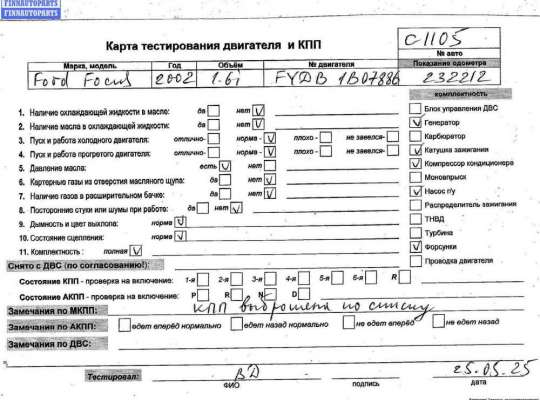 FINNAUTOPARTS
FINNAUTOPARTS
Карта тестирования двигателя и КПП
C1105
№ авто
Марка, модель Год Объём № двигателя Показание одометра
Ford Focus 2002 1.6i FYDB 1B07886 232212
комплектность
1. Наличие охлаждающей жидкости в масле: да нет V
2. Наличие масла в охлаждающей жидкости: да нет V
3. Пуск и работа холодного двигателя: отлично- норма - V плохо - не завелся-
4. Пуск и работа прогретого двигателя: отлично- норма - V плохо - не завелся-
5. Давление масла: есть V нет
6. Картерные газы из отверстия масляного щупа: да нет V
7. Наличие газов в расширительном бачке: да нет V
8. Посторонние стуки или шумы при работе: да нет V
9. Дымность и цвет выхлопа: норма V
10. Состояние сцепления: норма V
11. Комплектность : полная V
Блок управления ДВС
V Генератор
Карбюратор
V Катушка зажигания
V Компрессор кондиционера
Моновпрыск
V Насос г/у
Распределитель зажигания
ТНВД
Турбина
V Форсунки
Проводка двигателя
Снято с ДВС (по согласованию!):
Состояние КПП - проверка на включение: 1-я 2-я 3-я 4-я 5-я 6-я R
Состояние АКПП - проверка на включение: P R N D
Замечания по МКПП: КПП выброшена по списку
Замечания по АКПП: едет вперёд нормально едет назад нормально не едет вперёд не едет назад
Замечания по ДВС:
Тестировал: ВД 25.05.25
ФИО подпись дата